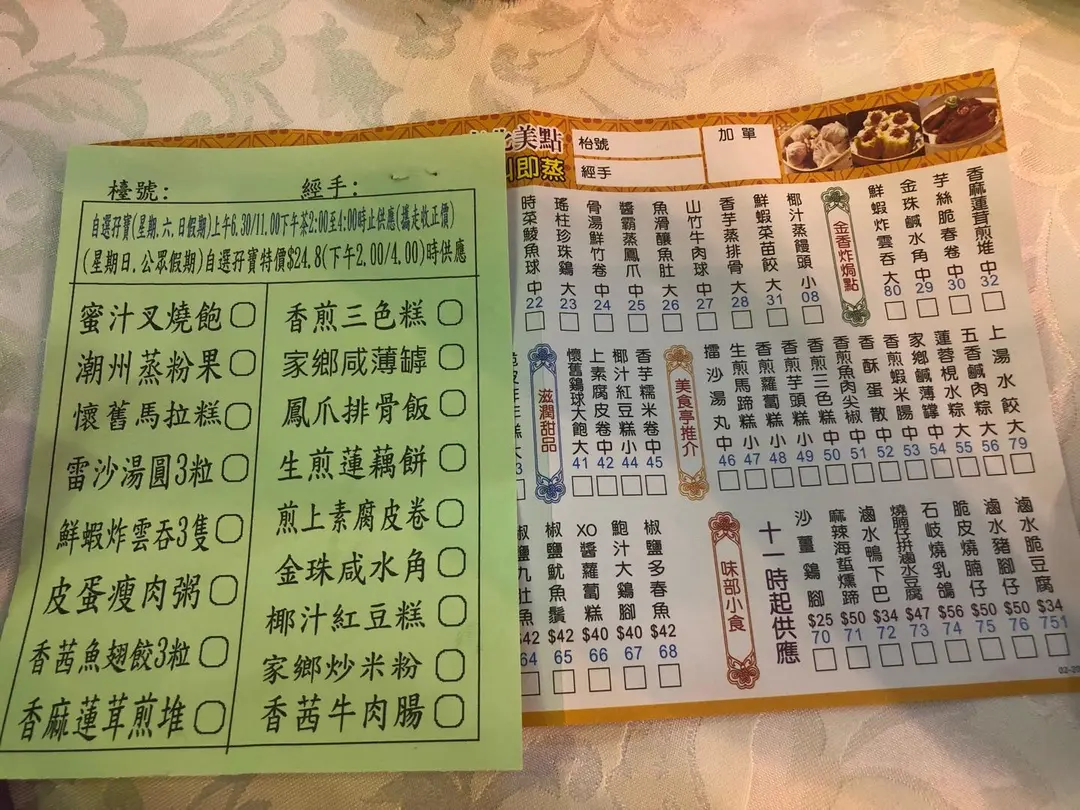 檯號:
經手:
自選孖寶(星期.六.日假期)上午6.30/11.00下午茶2:00至4:00時止供應(攜走收正價)
(星期日.公眾假期)自選孖寶特價$24.8(下午2.00/4.00)時供應
蜜汁叉燒飽
潮州蒸粉果
懷舊馬拉糕
雷沙湯圓3粒
鮮蝦炸雲吞3隻
皮蛋瘦肉粥
香茜魚翅餃3粒
香麻蓮茸煎堆
香煎三色糕
家鄉咸薄罉
鳳爪排骨飯
生煎蓮藕餅
煎上素腐皮卷
金珠咸水角
椰汁紅豆糕
家鄉炒米粉
香茜牛肉腸
美點
即蒸
枱號
經手
加單
香麻蓮茸煎堆 中 32
芋絲脆春卷 中 30
金珠鹹水角 中 29
鮮蝦炸雲吞 大 80
金香炸焗點
椰汁蒸饅頭 小 08
鮮蝦菜苗餃 大 31
香芋蒸排骨 大 28
山竹牛肉球 中 27
魚滑釀魚肚 大 26
醬霸蒸鳳爪 中 25
骨湯鮮竹卷 中 24
瑤柱珍珠鷄 大 23
時菜鯪魚球 中 22
上湯水餃 大 79
五香鹹肉粽 大 56
蓮蓉梘水粽 大 55
家鄉鹹薄罉 中 54
香煎蝦米腸 中 53
香酥蛋散 中 52
香煎魚肉尖椒 中 51
香煎三色糕 中 50
香煎芋頭糕 小 49
香煎蘿蔔糕 小 48
生煎馬蹄糕 小 47
擂沙湯丸 中 46
美食亭推介
香芋糯米卷 中 45
椰汁紅豆糕 小 44
上素腐皮卷 中 42
懷舊鷄球大飽 大 41
滋潤甜品
滷水脆豆腐 $34 751
滷水豬腳仔 $50 76
脆皮燒腩仔 $50 75
石岐燒乳鴿 $56 74
燒腩仔拼滷水豆腐 $47 73
滷水鴨下巴 $34 72
麻辣海蜇燻蹄 $50 71
沙薑鷄腳 $25 70
十一時起供應
味部小食
椒鹽多春魚 $42 68
鮑汁大鷄腳 $40 67
XO醬蘿蔔糕 $40 66
椒鹽魷魚鬚 $42 65
椒鹽九肚魚 $42 64